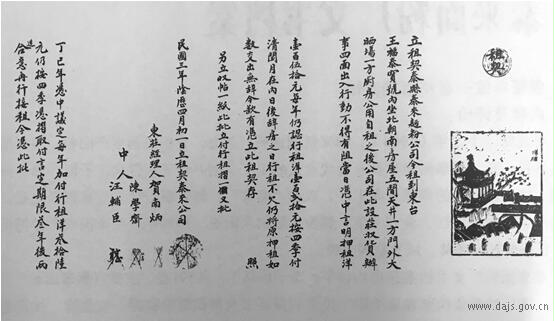 立租契泰縣泰來麵粉公司今租到東台
王福泰寶號內坐北朝南房屋五間天井一方門外大
晒場一方廚房公用自租之後公司在此設莊收貨辦
事四面出入行動不得有阻當日憑中言明押租洋
壹百伍拾元每年仍認行租洋壹百貳拾元按四季付
清閏月在內日後辞房之日行租不欠仍將原押租如
數交出無辞今欲有憑立此租契存 照
另立收帖一紙此批立付行租摺一個又批
民國三年陰歷四月初一日立租契泰來公司
東莊經理人賀南炳
中人 陳學齋
汪輔臣
丁巳年憑中議定每年加付行租洋貳拾陸
元仍按四季憑摺取付言定期限叁年後兩
造合意再行接租合憑此批
www.dajs.gov.cn